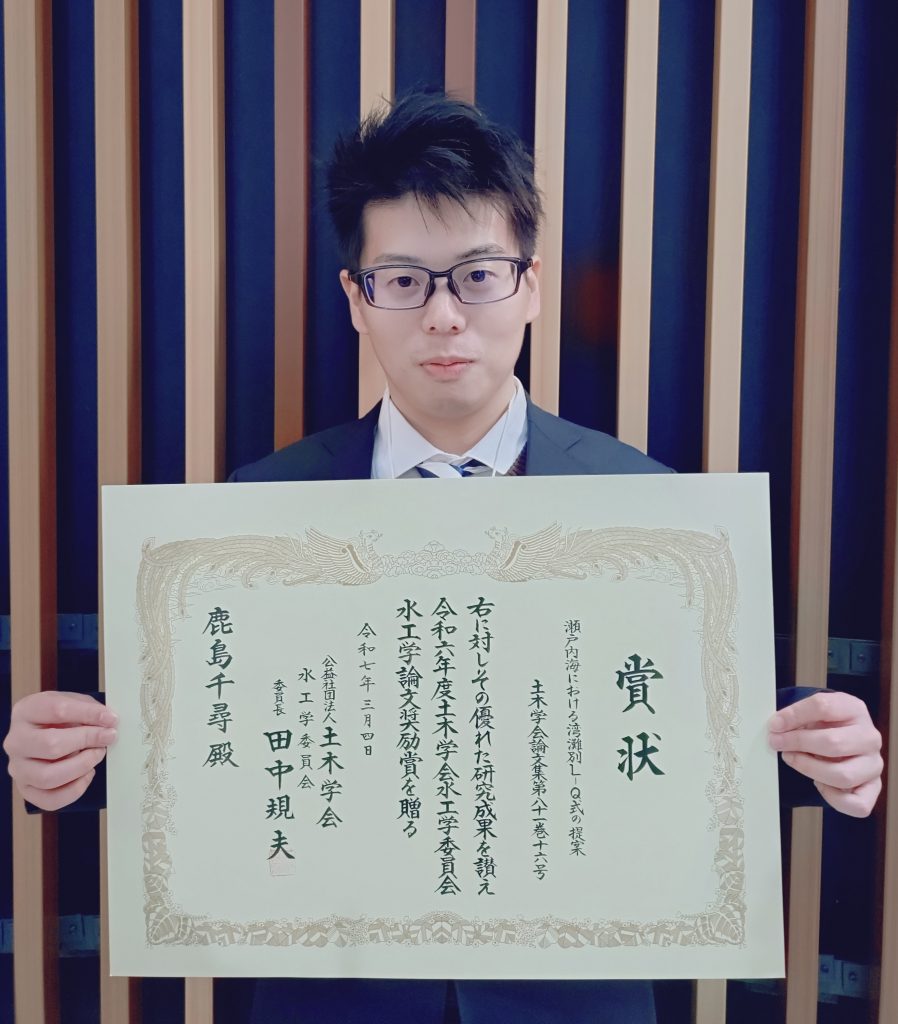 賞状
瀬戸内海における湾灘別L-Q式の提案
土木学会論文集第八十一巻十六号
右に対しその優れた研究成果を讃え
令和六年度土木学会水工学委員会
水工学論文奨励賞を贈る
令和七年三月四日
公益社団法人土木学会
水工学委員会
委員長 田中規夫
鹿島千尋殿